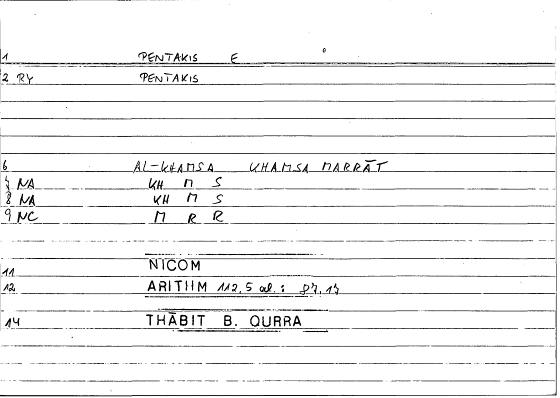 1 PENTAKIS E
2 RY PENTAKIS
6 AL-KHAMSA KHAMSA MARRĀT
7 NA KH M S
8 NA KH M S
9 NC M R R
11 NICOM
12 ARITHM 112,5 al.: 87,17
14 THĀBIT B. QURRA